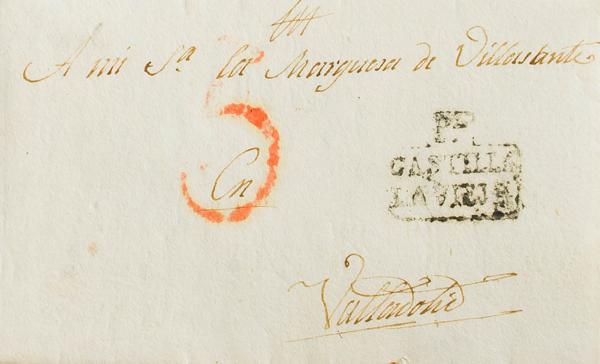 A mi Sª la Marquesa de Villasante
5
En
Pp
CASTILLA
LA VIEJA
Valladolid